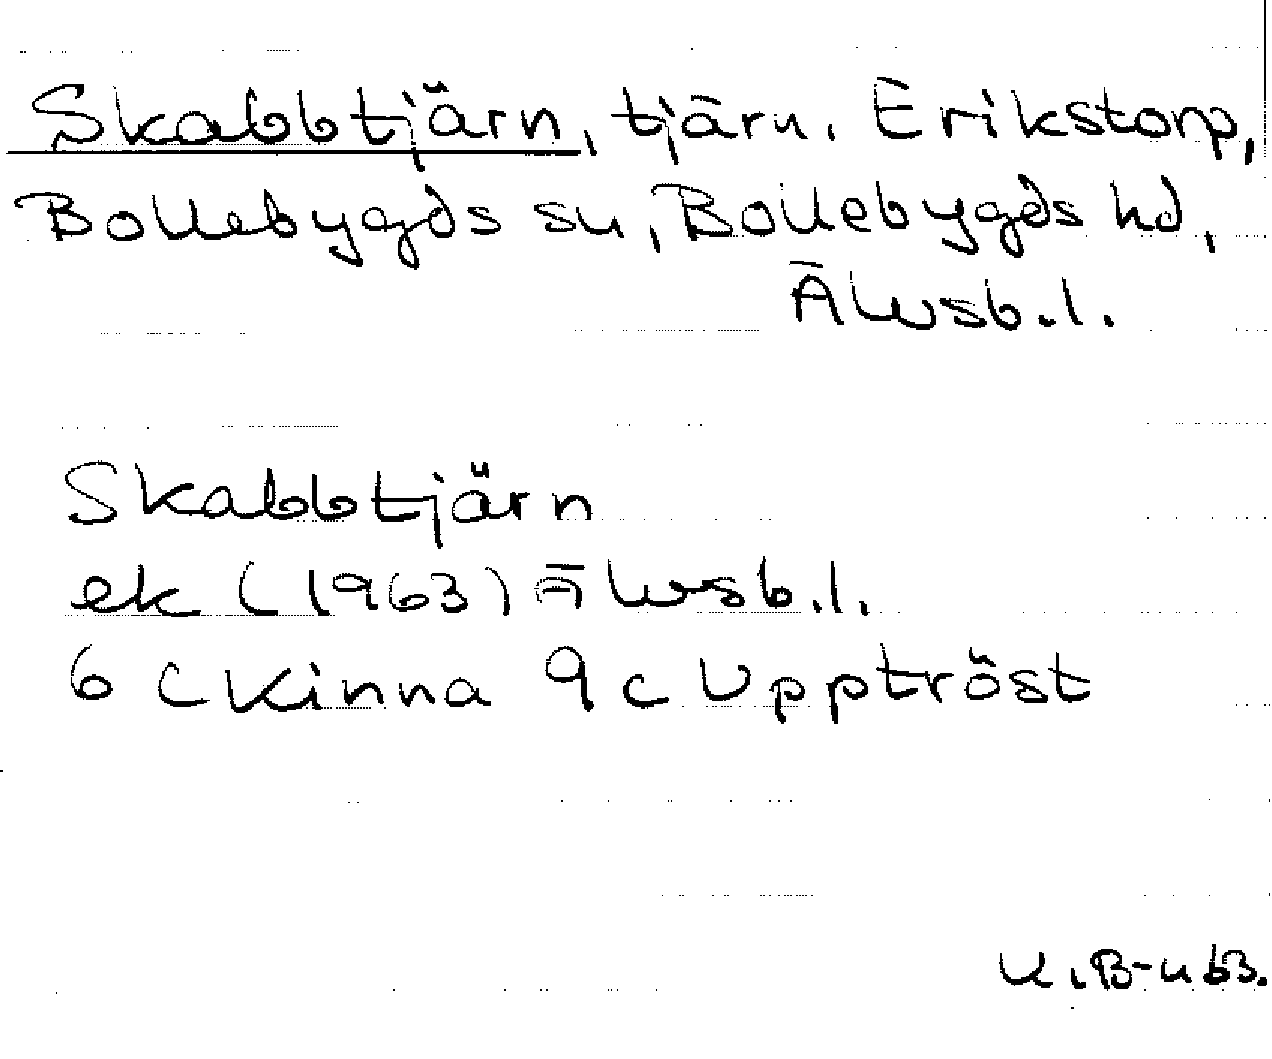 Skabbtjärn, tjärn. Erikstorp,
Bollebygds sn, Bollebygds hd,
Älvsb.l.
Skabbtjärn
ek (1963) Älvsb.l.
6 C Kinna 9 c Upptröst